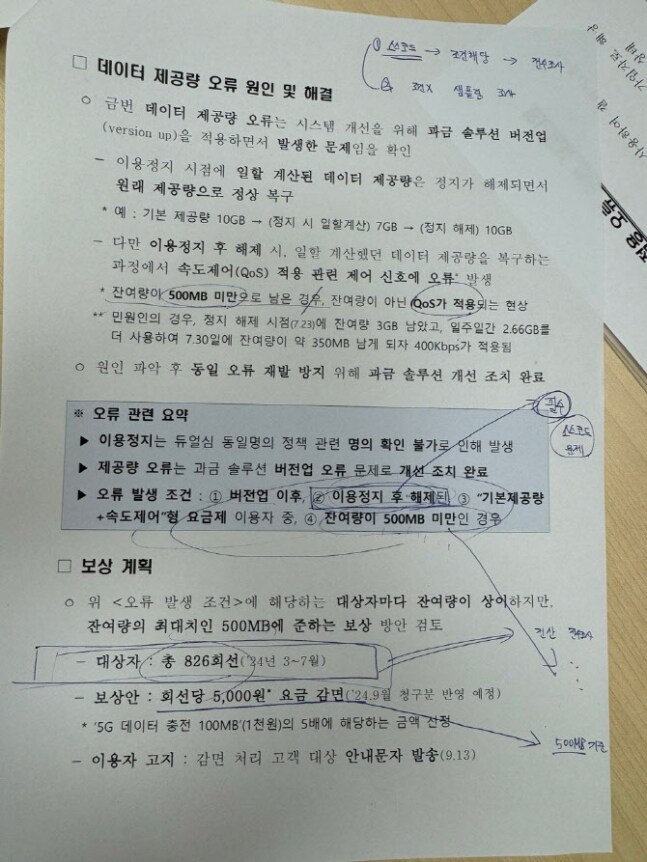 ① 소스코드 → 조건해당 → 전수조사
② 표본X 샘플링 조사
□ 데이터 제공량 오류 원인 및 해결
○ 금번 데이터 제공량 오류는 시스템 개선을 위해 과금 솔루션 버전업
(version up)을 적용하면서 발생한 문제임을 확인
– 이용정지 시점에 일할 계산된 데이터 제공량은 정지가 해제되면서
원래 제공량으로 정상 복구
* 예 : 기본 제공량 10GB → (정지 시 일할계산) 7GB → (정지 해제) 10GB
– 다만 이용정지 후 해제 시, 일할 계산했던 데이터 제공량을 복구하는
과정에서 속도제어(QoS) 적용 관련 제어 신호에 오류* 발생
* 잔여량이 500MB 미만으로 남은 경우, 잔여량이 아닌 QoS가 적용되는 현상
** 민원인의 경우, 정지 해제 시점(7.23)에 잔여량 3GB 남았고, 일주일간 2.66GB를
더 사용하여 7.30일에 잔여량이 약 350MB 남게 되자 400Kbps가 적용됨
○ 원인 파악 후 동일 오류 재발 방지 위해 과금 솔루션 개선 조치 완료
필수
소스코드
문제
※ 오류 관련 요약
▶ 이용정지는 듀얼심 동일명의 정책 관련 명의 확인 불가로 인해 발생
▶ 제공량 오류는 과금 솔루션 버전업 오류 문제로 개선 조치 완료
▶ 오류 발생 조건 : ① 버전업 이후, ② 이용정지 후 해제된 ③ “기본제공량
+속도제어”형 요금제 이용자 중, ④ 잔여량이 500MB 미만인 경우
□ 보상 계획
○ 위 <오류 발생 조건>에 해당하는 대상자마다 잔여량이 상이하지만,
잔여량의 최대치인 500MB에 준하는 보상 방안 검토
전산 전수조사
– 대상자 : 총 826회선('24년 3~7월)
– 보상안 : 회선당 5,000원* 요금 감면('24.9월 청구분 반영 예정)
* '5G 데이터 충전 100MB'(1천원)의 5배에 해당하는 금액 선정
500MB 기준
– 이용자 고지 : 감면 처리 고객 대상 안내문자 발송(9.13)